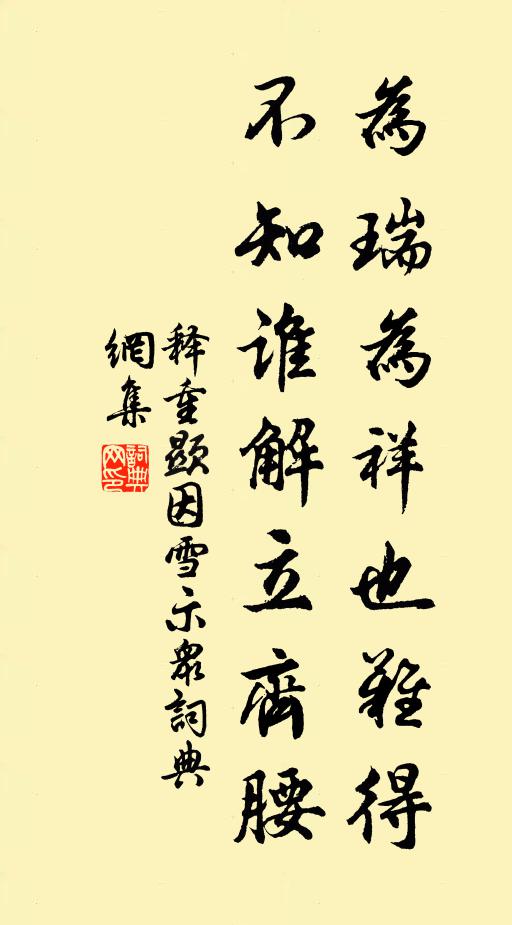 為瑞為祥也難得
不知誰解立齊腰
释重顯因雪示衆詞典
網集
詞典網印